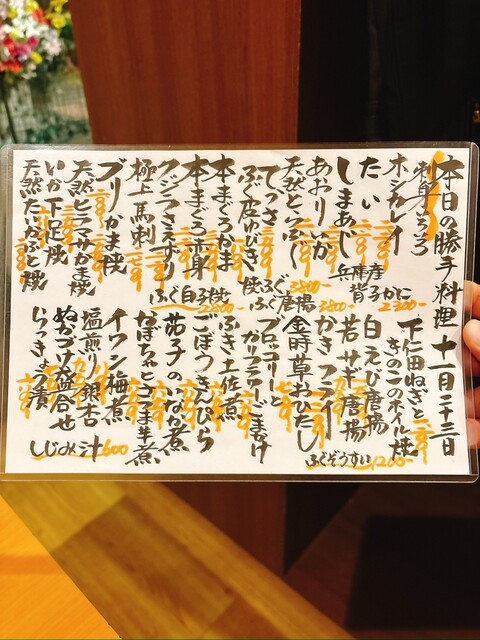 本日の勝手料理 十一月二十三日
刺身いろいろ
ホシカレイ
たい
しまあじ
あおりいか
天然とらふぐ
てっさ
ふぐ皮ゆびき
本まぐろかま焼
本まぐろ赤身
クジラさえずり
極上馬刺
ブリかま焼
天然ヒラマサかま焼
いか下足焼
天然たいかぶと焼
兵庫産
背子かに
2300-
焼ふぐ 3800-
ふぐ唐揚 3800-
ふぐ白子焼
2800-
下仁田ねぎと
きのこのホイル焼
白えび唐揚
若サギ唐揚
かきフライ
金時草おひたし
ブロッコリーと
カリフラワーごまあげ
ふき土佐煮
ごぼうきんぴら
茄子のいなか煮
かぼちゃとコンニャク煮
イワシ梅煮
塩煎り銀杏
ぬかづけ盛合せ
らっきょう漬
ふぐぞうすい 1200-
しじみ汁 600